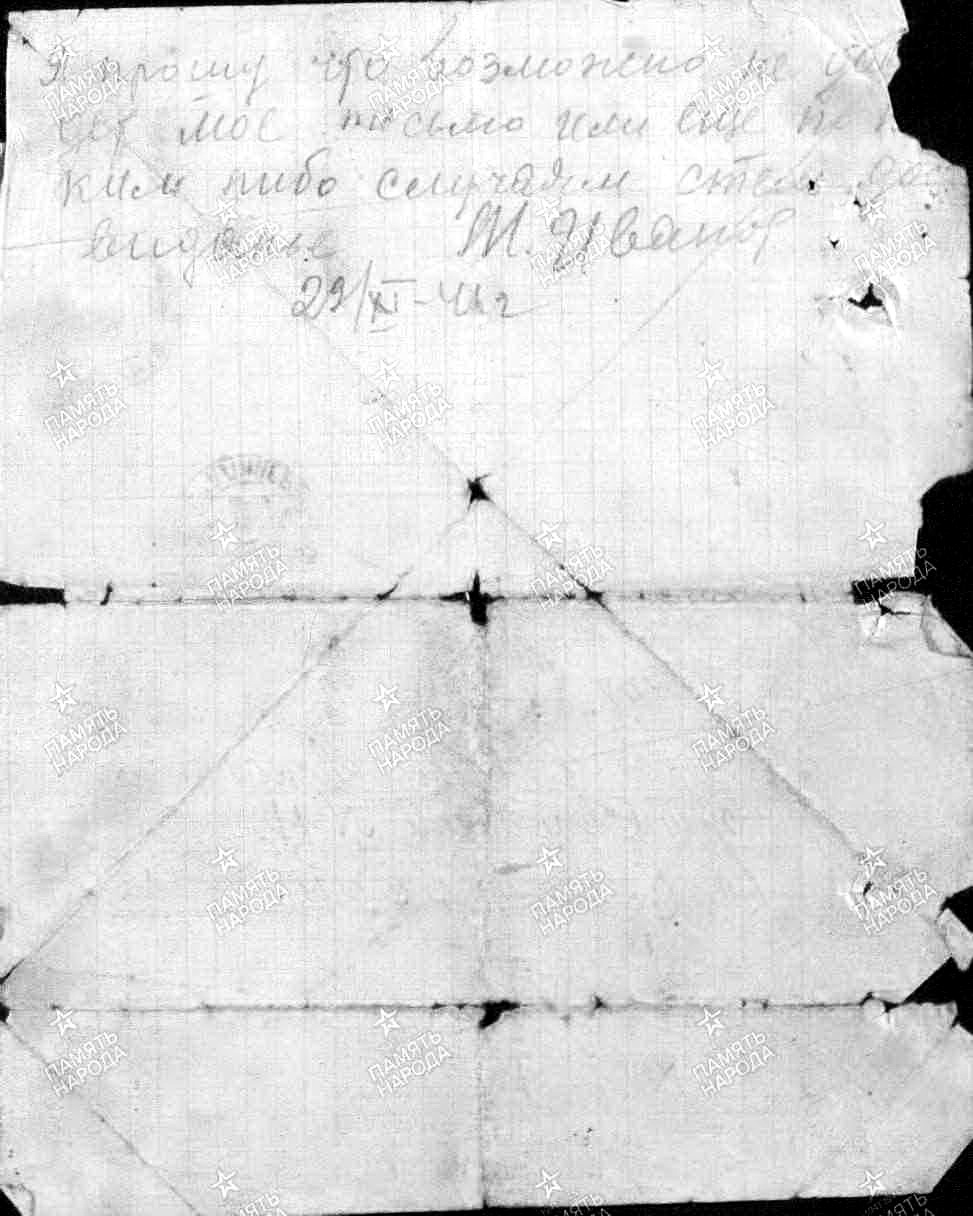 Я прошу что возможено не
мое письмо или еще
ким либо случаям
видание М. Иванов
29/XI-41г
ПАМЯТЬ НАРОДА